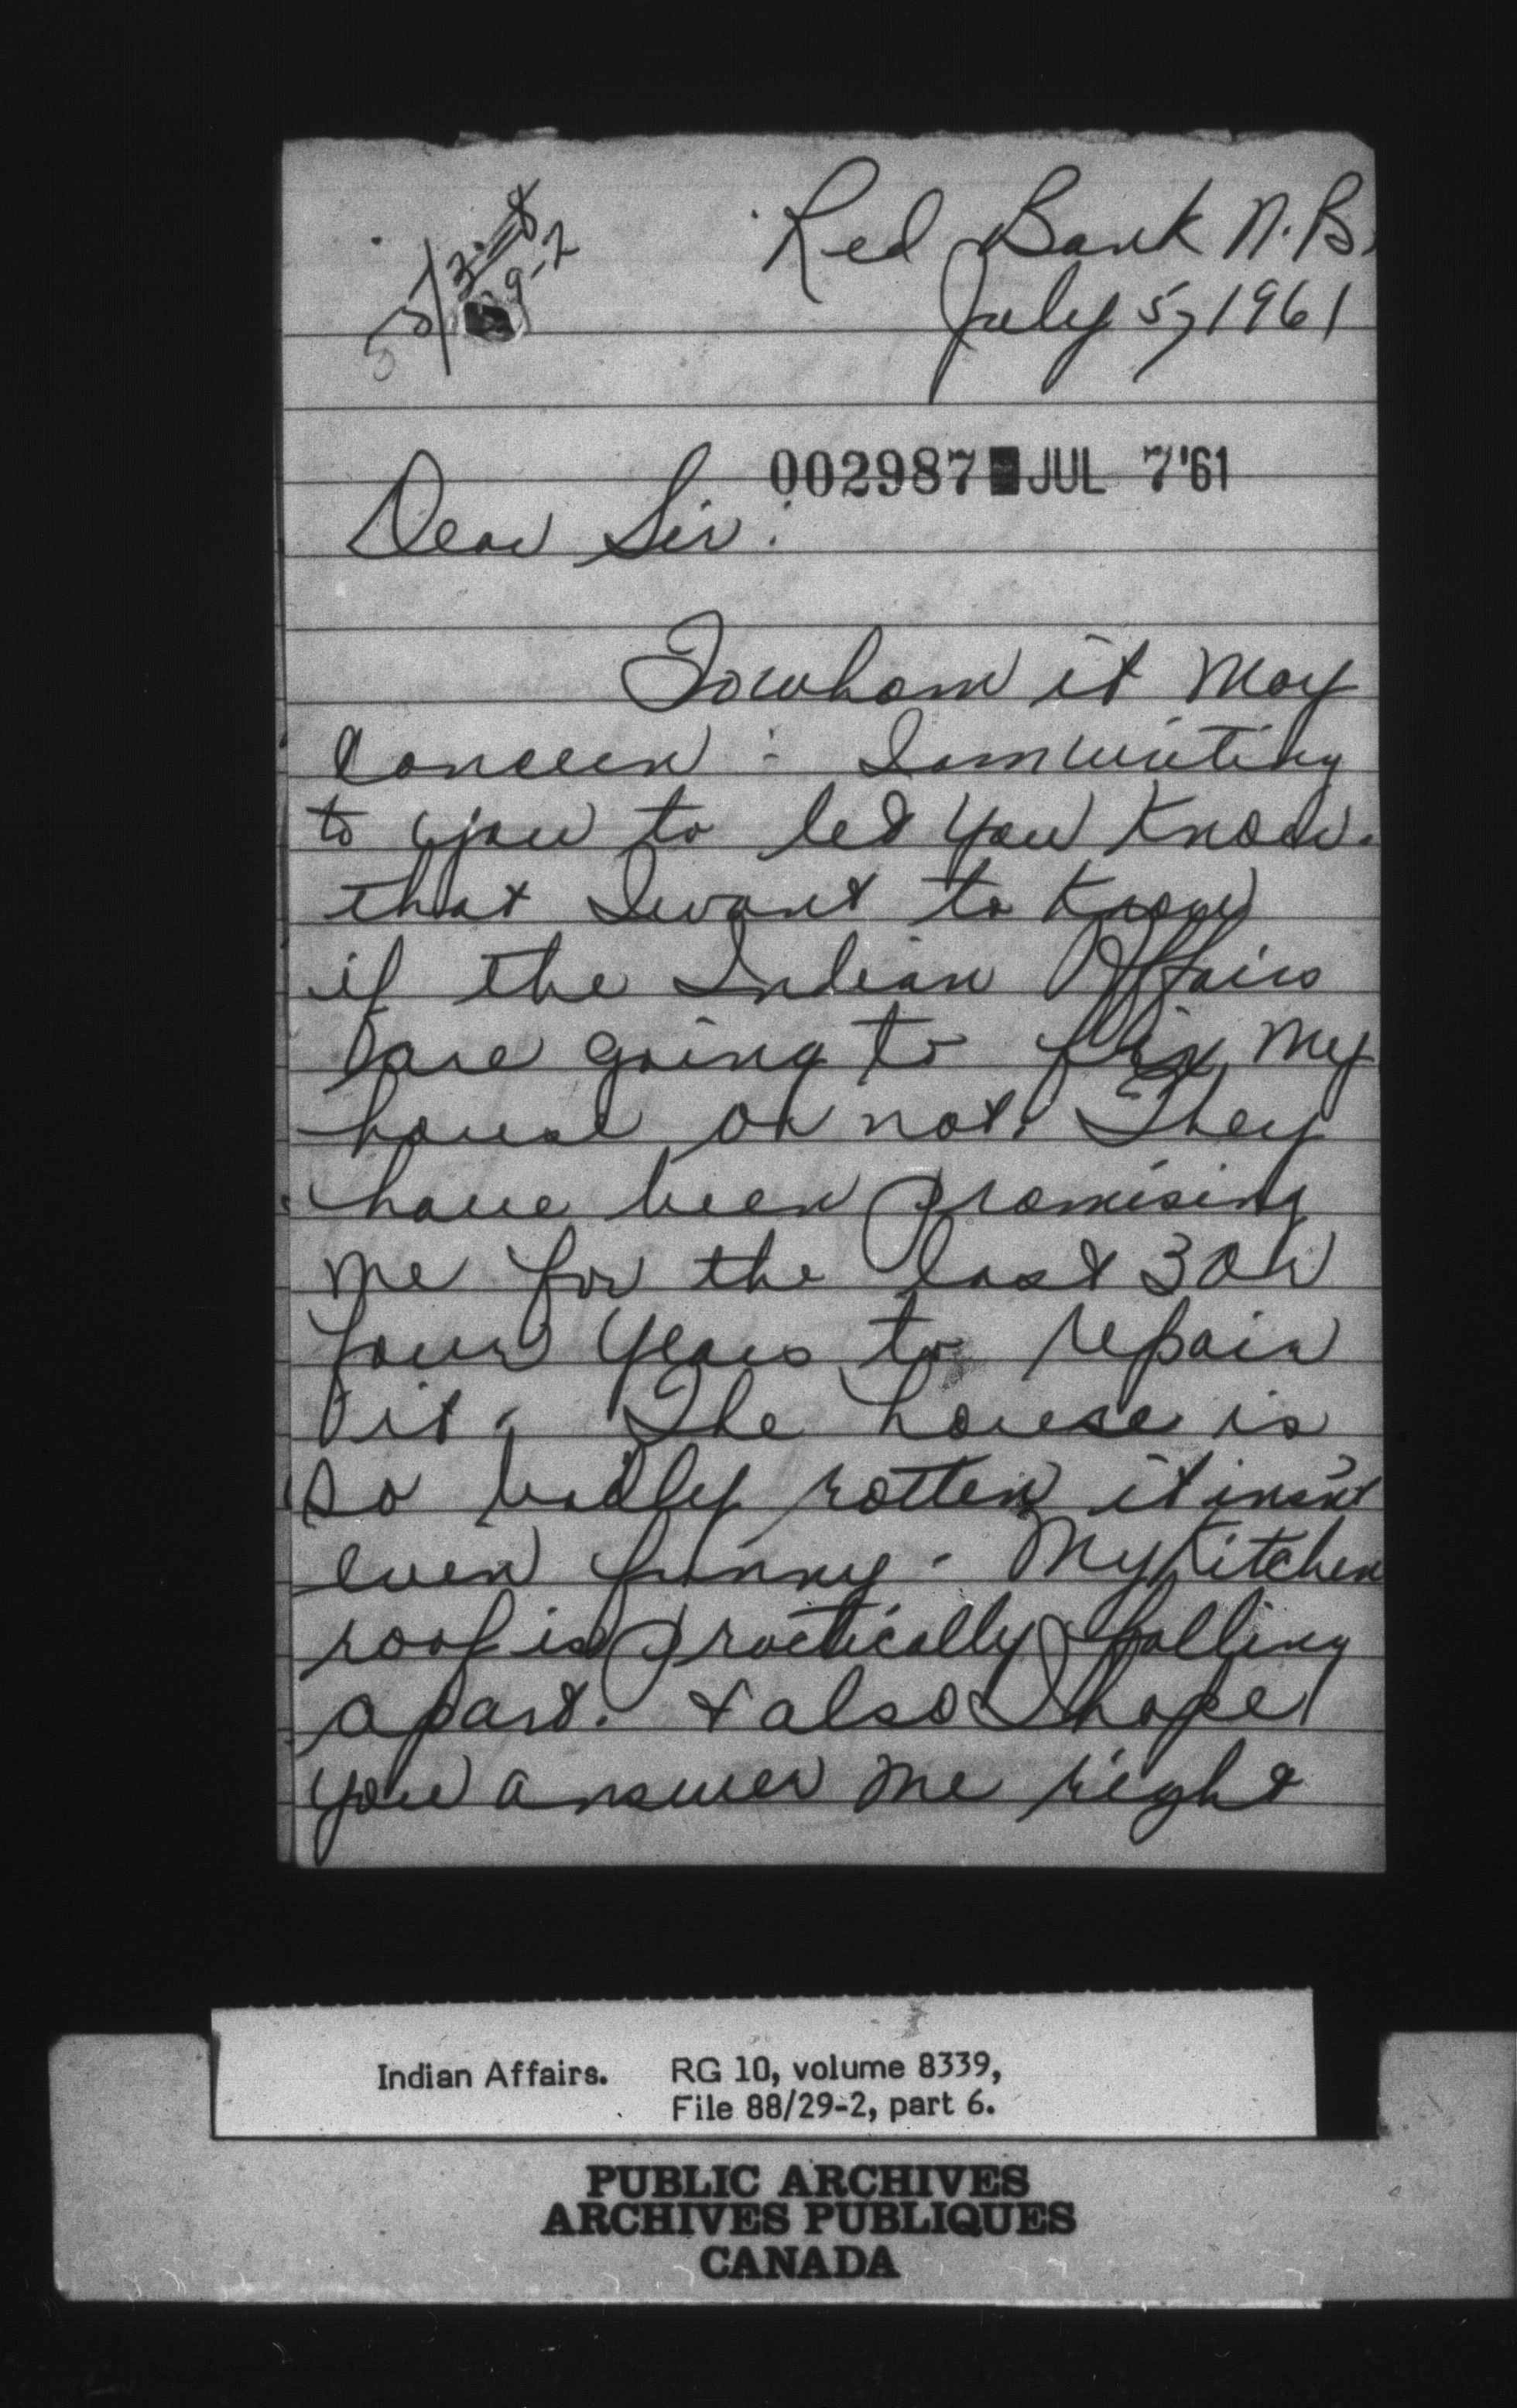 Red Bank N.B.
July 5, 1961
29-2
002987 JUL 7'61
Dear Sir:
To whom it May
Concern: I am writing
to you to let you know.
that I want to know
if the Indian Affairs
are going to fix my
house or not. They
have been promising
me for the last 3 or
four years to repair
it. The house is
so badly rotten it isn't
even funny. My Kitchen
roof is practically falling
apart. & also I hope
you answer me right
Indian Affairs. RG 10, volume 8339,
File 88/29-2, part 6.
PUBLIC ARCHIVES
ARCHIVES PUBLIQUES
CANADA